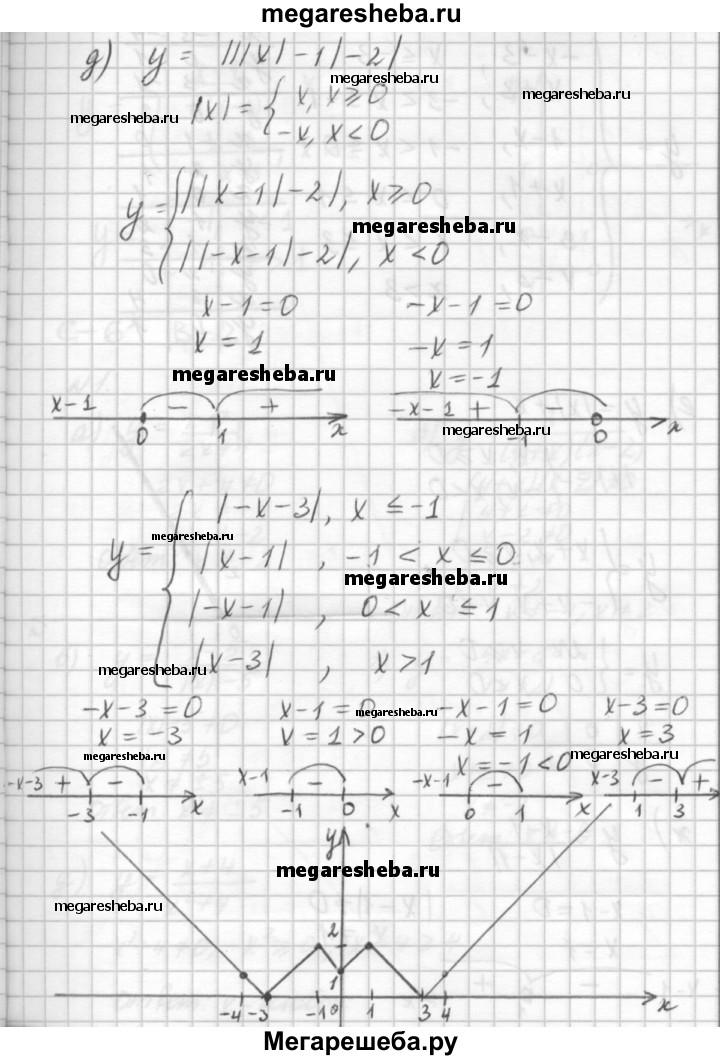 megaresheba.ru
д) y = |||x|-1|-2|
megaresheba.ru
megaresheba.ru
megaresheba.ru
|x| = { x, x ⩾ 0
-x, x < 0
y = { ||x-1|-2|, x ⩾ 0
megaresheba.ru
||-x-1|-2|, x < 0
x-1=0 -x-1=0
x = 1 -x = 1
megaresheba.ru x = -1
x-1 - + -x-1 + -
megaresheba.ru
0 1 x -1 0 x
y = { |-x-3|, x ≤ -1
megaresheba.ru
|x-1|, -1 < x ≤ 0
megaresheba.ru
|-x-1|, 0 < x ≤ 1
megaresheba.ru
|x-3|, x > 1
-x-3=0 x-1=0 -x-1=0 x-3=0
megaresheba.ru
x = -3 x = 1 > 0 -x = 1 x = 3
megaresheba.ru x = -1 < 0 megaresheba.ru
-x-3 + - x-1 - -x-1 - x-3 - +
-3 -1 x -1 0 x 0 1 x 1 3
y
megaresheba.ru
megaresheba.ru
2
1
-4 -3 -1 0 1 3 4 x
Мегарешеба.ру